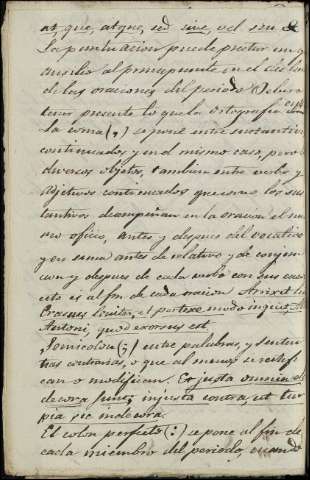 at, que, atque, sed sive, vel seu &
La puntuacion puede prestar un
ausilio al principiante en el
de las oraciones del periodo. Debera
tener presente lo que la ortografia
La coma (,) se pone entre sustantivos
continuados y en el mismo caso, pero
diversos objetos, tambien entre verbos y
adjetivos continuados que como los sus
tantivos desempeñan en la oracion el mis
mo oficio, antes y despues del vocativo
y en suma antes de relativo y de conjun
cion y despues de cada verbo con sus
es al fin de cada oracion
Erasmus leniter, et modo inquit,
Antoni, quod exorsus est
Semicolon (;) entre palabras, y senten
cias contrarias, o que al menos se rectifi
can o modifican. Et justa omnia
decora sunt; injusta contra, ut tur
pia sic indecora.
El colon perfecto (:) se pone al fin de
cada miembro del periodo, cuando